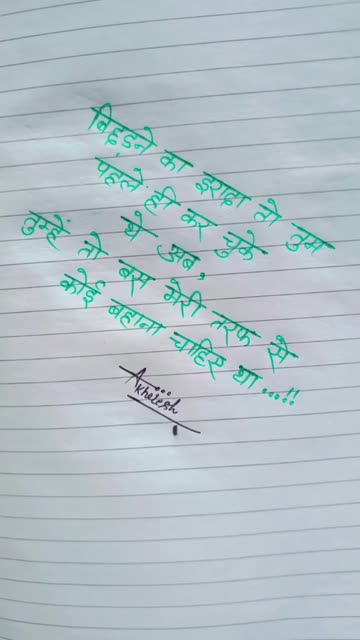 बिछड़ने का इरादा तो तुम
पहले ही कर चुके
थे अब,
तुम्हें तो बस मेरी तरफ से
कोई बहाना चाहिए था ....!!
Akhelesh